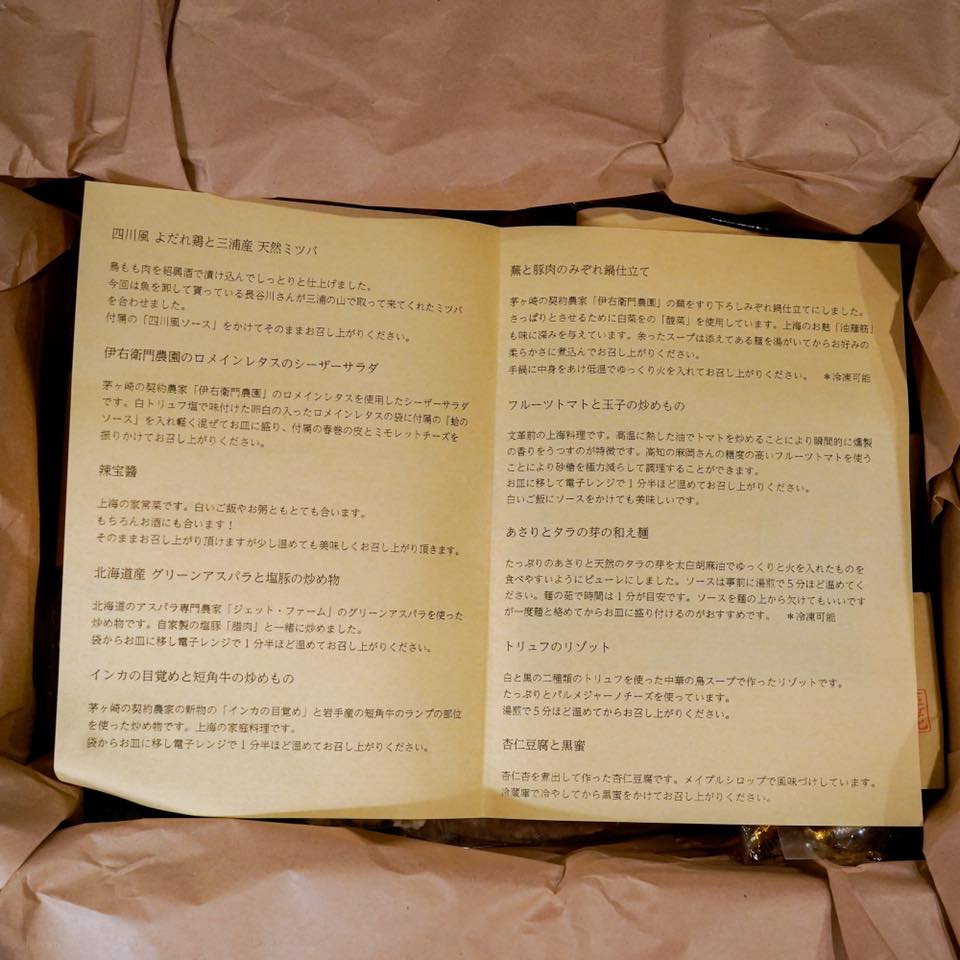 四川風 よだれ鶏と三浦産 天然ミツバ
鳥もも肉を紹興酒で漬け込んでしっとりと仕上げました。
今回は魚を卸して貰っている長谷川さんが三浦の山で取って来てくれたミツバ
を合わせました。
付属の「四川風ソース」をかけてそのままお召し上がりください。
伊右衛門農園のロメインレタスのシーザーサラダ
茅ヶ崎の契約農家「伊右衛門農園」のロメインレタスを使用したシーザーサラダ
です。白トリュフ塩で味付けた卵白の入ったロメインレタスの袋に付属の「蛤の
ソース」を入れ軽く混ぜてお皿に盛り、付属の春巻の皮とミモレットチーズを
振りかけてお召し上がりください。
辣宝醬
上海の家常菜です。白いご飯やお粥ともとても合います。
もちろんお酒にも合います！
そのままお召し上がり頂けますが少し温めても美味しくお召し上がり頂きます。
北海道産 グリーンアスパラと塩豚の炒め物
北海道のアスパラ専門農家「ジェット・ファーム」のグリーンアスパラを使った
炒め物です。自家製の塩豚「腊肉」と一緒に炒めました。
袋からお皿に移し電子レンジで１分半ほど温めてお召し上がりください。
インカの目覚めと短角牛の炒めもの
茅ヶ崎の契約農家の新物の「インカの目覚め」と岩手産の短角牛のランプの部位
を使った炒め物です。上海の家庭料理です。
袋からお皿に移し電子レンジで１分半ほど温めてお召し上がりください。
蕪と豚肉のみぞれ鍋仕立て
茅ヶ崎の契約農家「伊右衛門農園」の蕪をすり下ろしみぞれ鍋仕立てにしました。
さっぱりとさせるために白菜をの「酸菜」を使用しています。上海のお麩「油麺筋」
も味に深みを与えています。余ったスープは添えてある麺を湯がいてからお好みの
柔らかさに煮込んでお召し上がりください。
手鍋に中身をあけ低温でゆっくり火を入れてお召し上がりください。 ＊冷凍可能
フルーツトマトと玉子の炒めもの
文革前の上海料理です。高温に熱した油でトマトを炒めることにより瞬間的に燻製
の香りをうつすのが特徴です。高知の麻岡さんの糖度の高いフルーツトマトを使う
ことにより砂糖を極力減らして調理することができます。
お皿に移して電子レンジで１分ほど温めてお召し上がりください。
白いご飯にソースをかけても美味しいです。
あさりとタラの芽の和え麺
たっぷりのあさりと天然のタラの芽を太白胡麻油でゆっくりと火を入れたものを
食べやすいようにピューレにしました。ソースは事前に湯煎で５分ほど温めてく
ださい。麺の茹で時間は１分が目安です。ソースを麺の上から欠けてもいいです
が一度麺と絡めてからお皿に盛り付けるのがおすすめです。 ＊冷凍可能
トリュフのリゾット
白と黒の二種類のトリュフを使った中華の鳥スープで作ったリゾットです。
たっぷりとパルメジャーノチーズを使っています。
湯煎で５分ほど温めてからお召し上がりください。
杏仁豆腐と黒蜜
杏仁杏を煮出して作った杏仁豆腐です。メイプルシロップで風味づけしています。
冷蔵庫で冷やしてから黒蜜をかけてお召し上がりください。